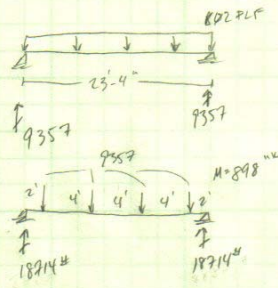 802 PLF
23'-4"
9357
9357
9357
M=898 "K
2' 4' 4' 4' 2'
18714#
18714#